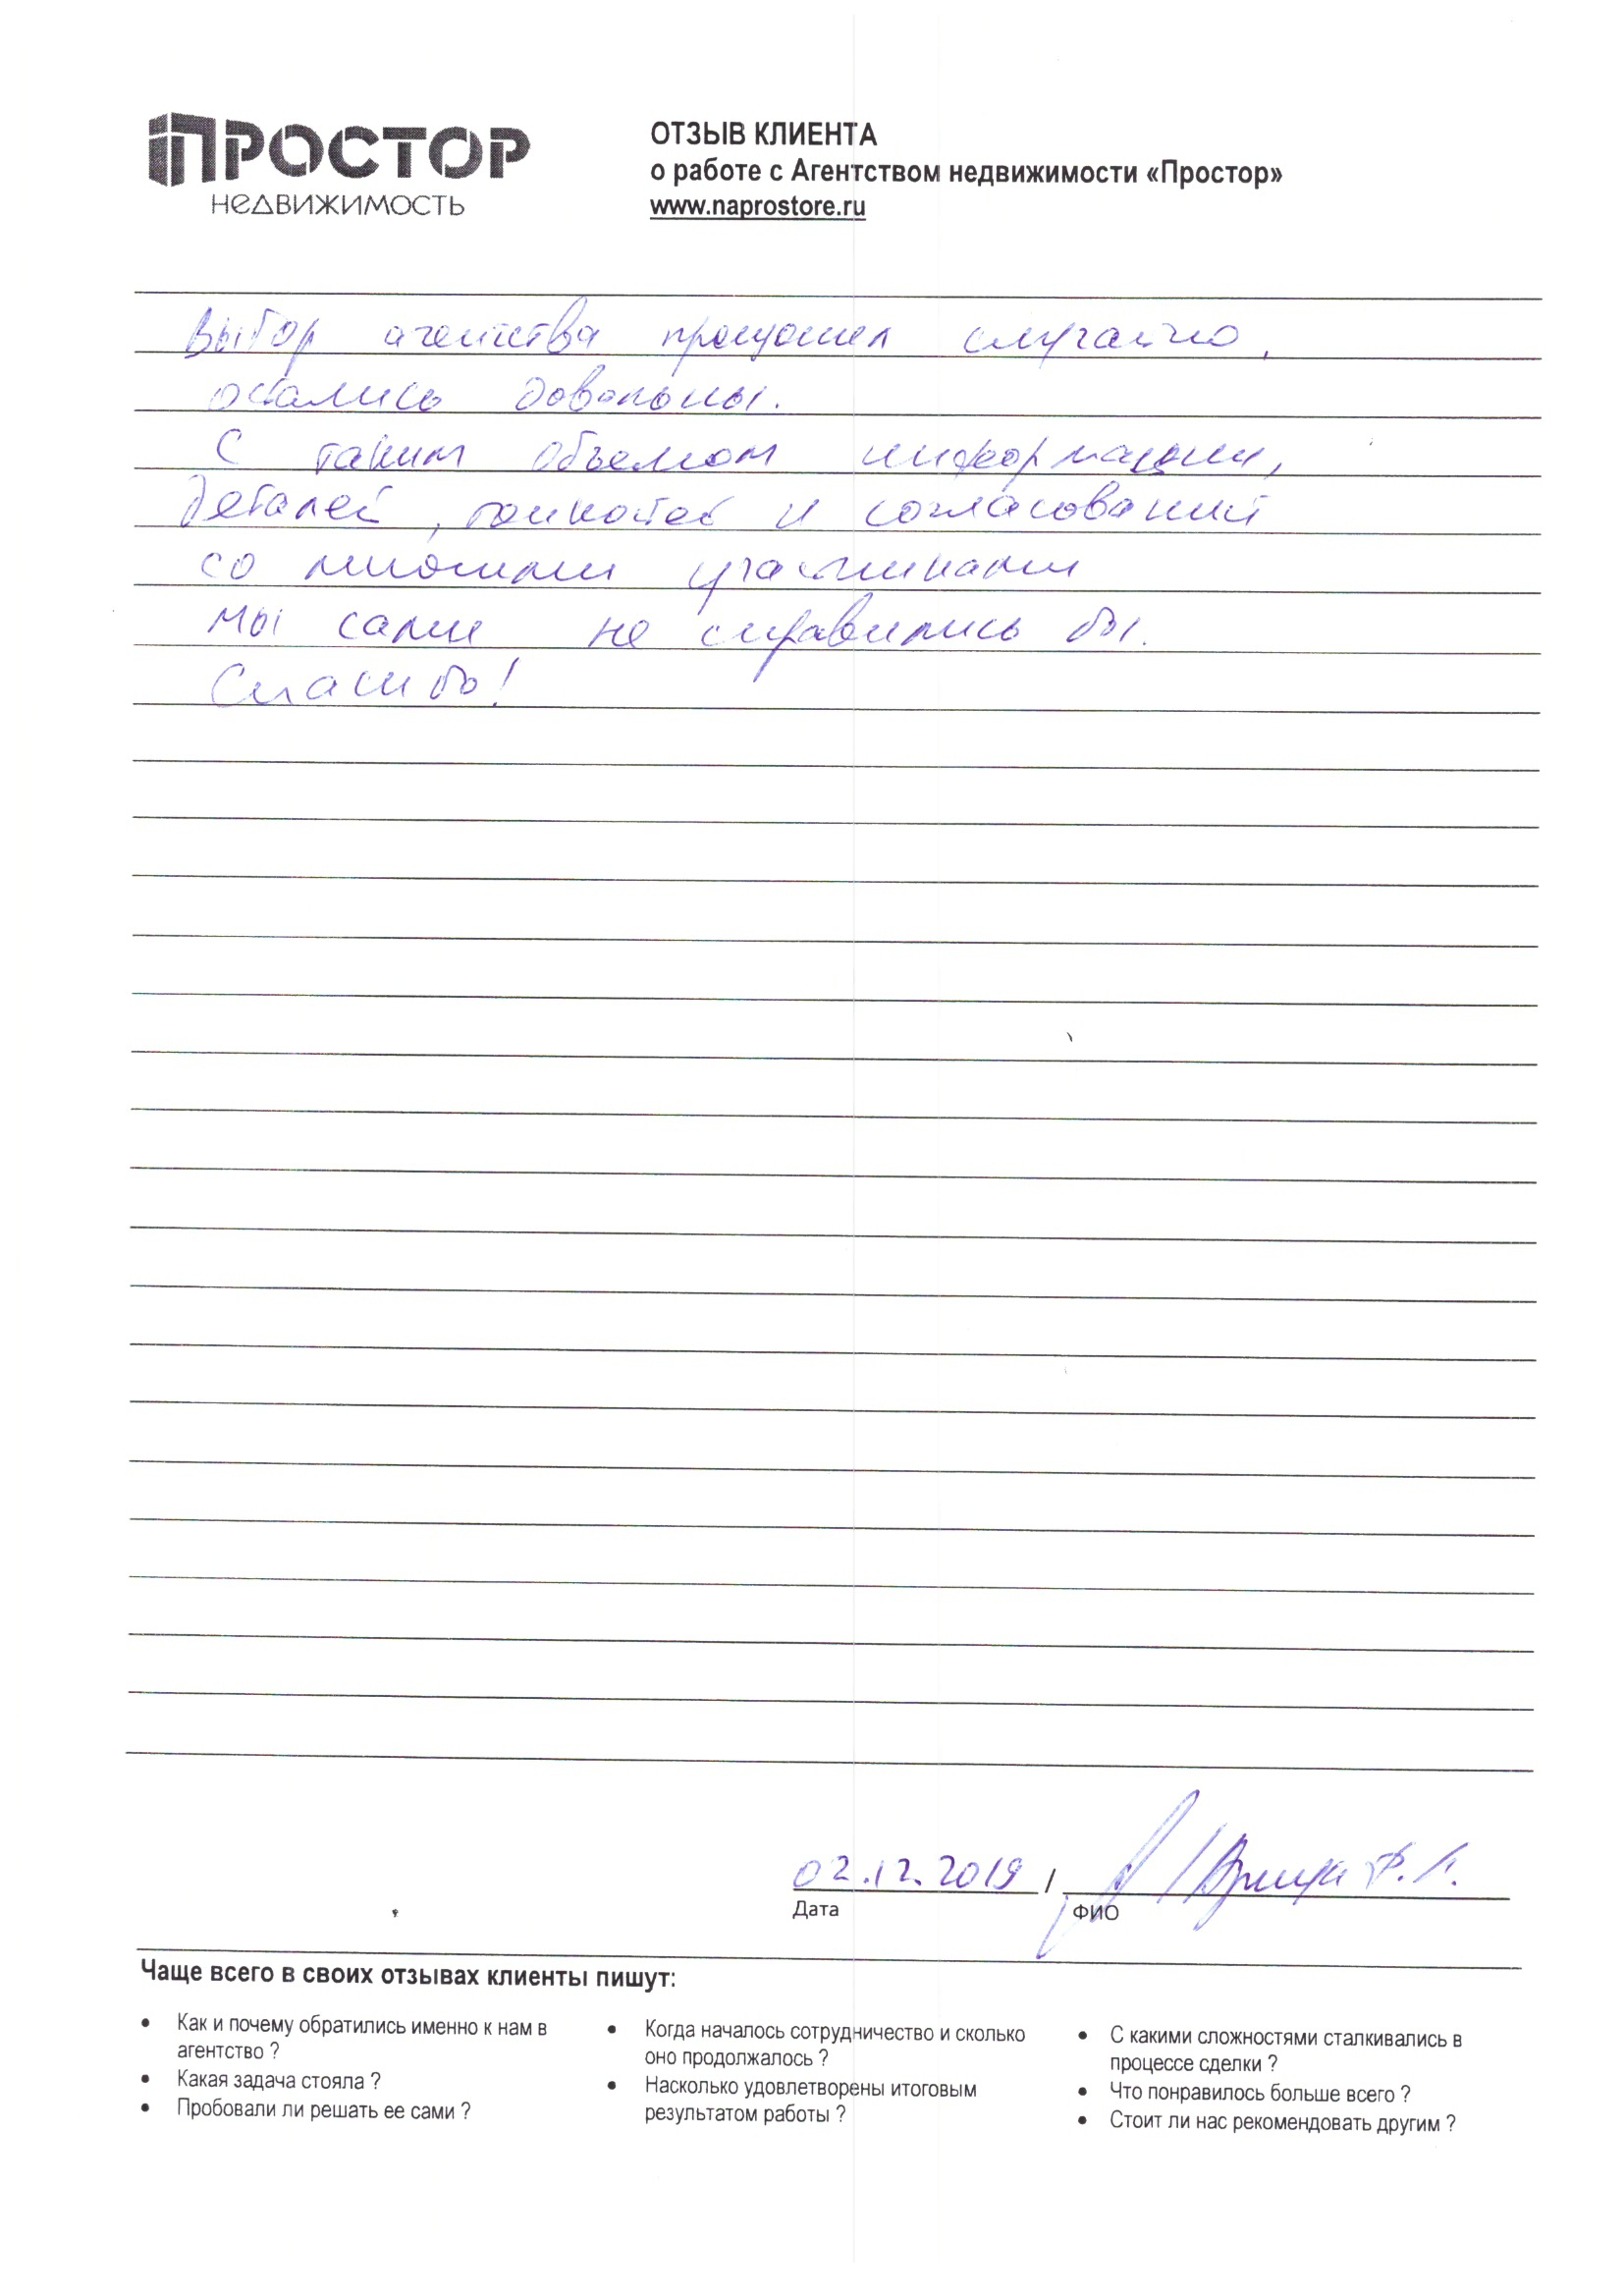 ПРОСТОР
НЕДВИЖИМОСТЬ
ОТЗЫВ КЛИЕНТА
о работе с Агентством недвижимости «Простор»
www.naprostore.ru
Выбор агентства произошел случайно,
остались довольны.
С таким объемом информации,
деталей, тонкостей и согласований
со многими участниками
мы сами не справились бы.
Спасибо!
02.12.2019 /
Дата
ФИО
Чаще всего в своих отзывах клиенты пишут:
• Как и почему обратились именно к нам в
агентство ?
• Какая задача стояла ?
• Пробовали ли решать ее сами ?
• Когда началось сотрудничество и сколько
оно продолжалось ?
• Насколько удовлетворены итоговым
результатом работы ?
• С какими сложностями сталкивались в
процессе сделки ?
• Что понравилось больше всего ?
• Стоит ли нас рекомендовать другим ?